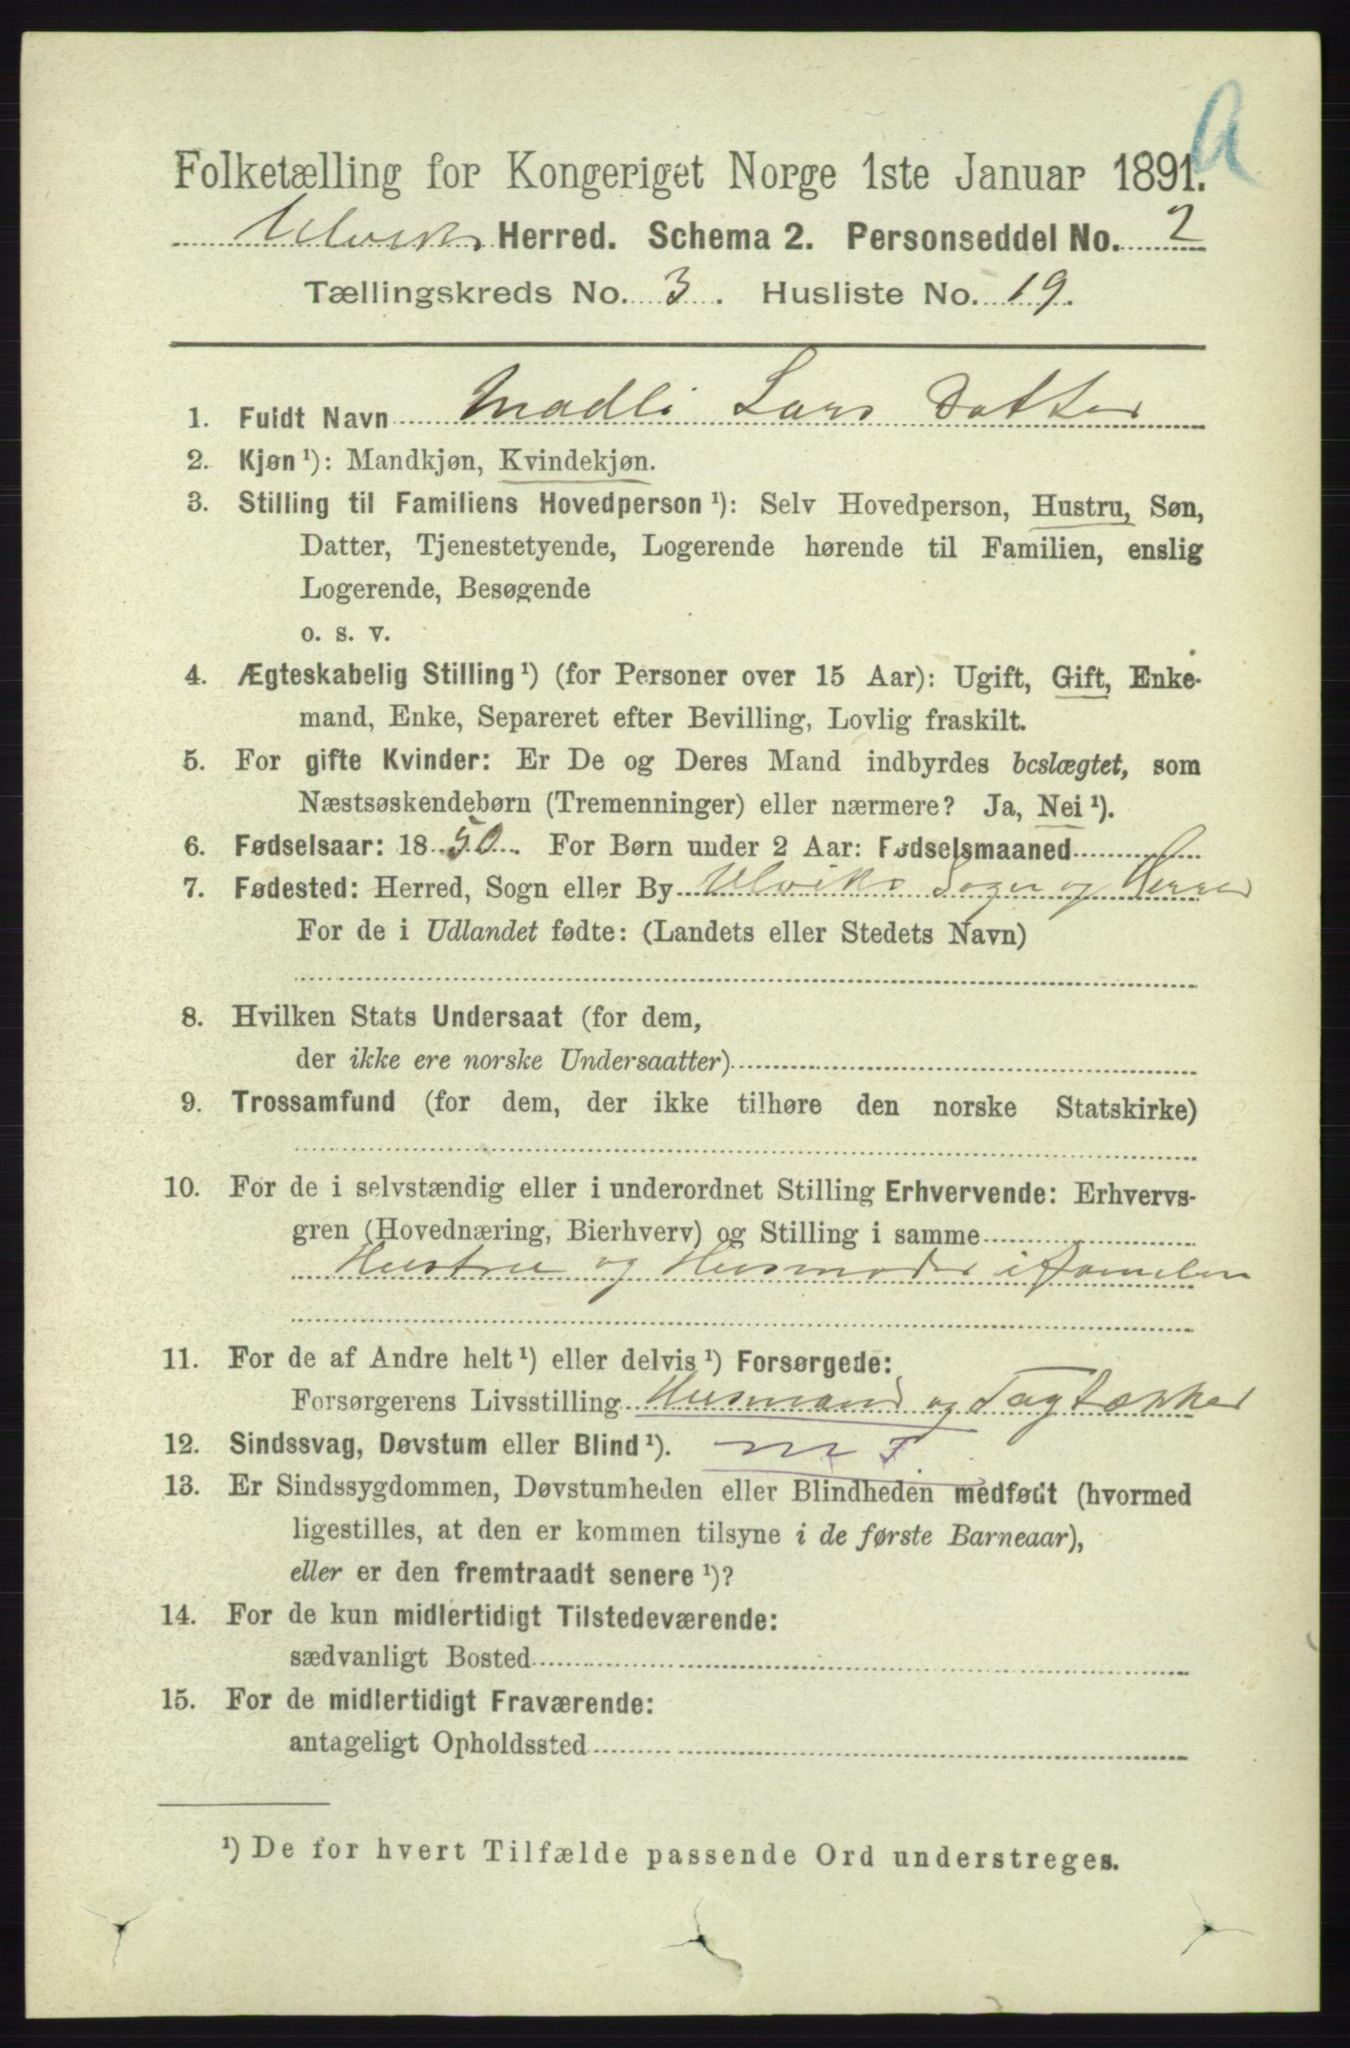 A
Folketælling for Kongeriget Norge 1ste Januar 1891.
Ulviks Herred. Schema 2. Personseddel No. 2
Tællingskreds No. 3. Husliste No. 19.
1. Fuldt Navn Madli Lars Datter
2. Kjøn ¹): Mandkjøn, Kvindekjøn.
3. Stilling til Familiens Hovedperson ¹): Selv Hovedperson, Hustru, Søn,
Datter, Tjenestetyende, Logerende hørende til Familien, enslig
Logerende, Besøgende
o. s. v.
4. Ægteskabelig Stilling ¹) (for Personer over 15 Aar): Ugift, Gift, Enke-
mand, Enke, Separeret efter Bevilling, Lovlig fraskilt.
5. For gifte Kvinder: Er De og Deres Mand indbyrdes beslægtet, som
Næstsøskendebørn (Tremenninger) eller nærmere? Ja, Nei ¹).
6. Fødselsaar: 1850. For Børn under 2 Aar: Fødselsmaaned
7. Fødested: Herred, Sogn eller By Ulviks Sogn og Herred
For de i Udlandet fødte: (Landets eller Stedets Navn)
8. Hvilken Stats Undersaat (for dem,
der ikke ere norske Undersaatter)
9. Trossamfund (for dem, der ikke tilhøre den norske Statskirke)
10. For de i selvstændig eller i underordnet Stilling Erhvervende: Erhvervs-
gren (Hovednæring, Bierhverv) og Stilling i samme
Hustru og Husmoder i Familien
11. For de af Andre helt ¹) eller delvis ¹) Forsørgede:
Forsørgerens Livsstilling Husmand og Tagtækker
12. Sindssvag, Døvstum eller Blind ¹). m F.
13. Er Sindssygdommen, Døvstumheden eller Blindheden medfødt (hvormed
ligestilles, at den er kommen tilsyne i de første Barneaar),
eller er den fremtraadt senere ¹)?
14. For de kun midlertidigt Tilstedeværende:
sædvanligt Bosted
15. For de midlertidigt Fraværende:
antageligt Opholdssted
¹) De for hvert Tilfælde passende Ord understreges.